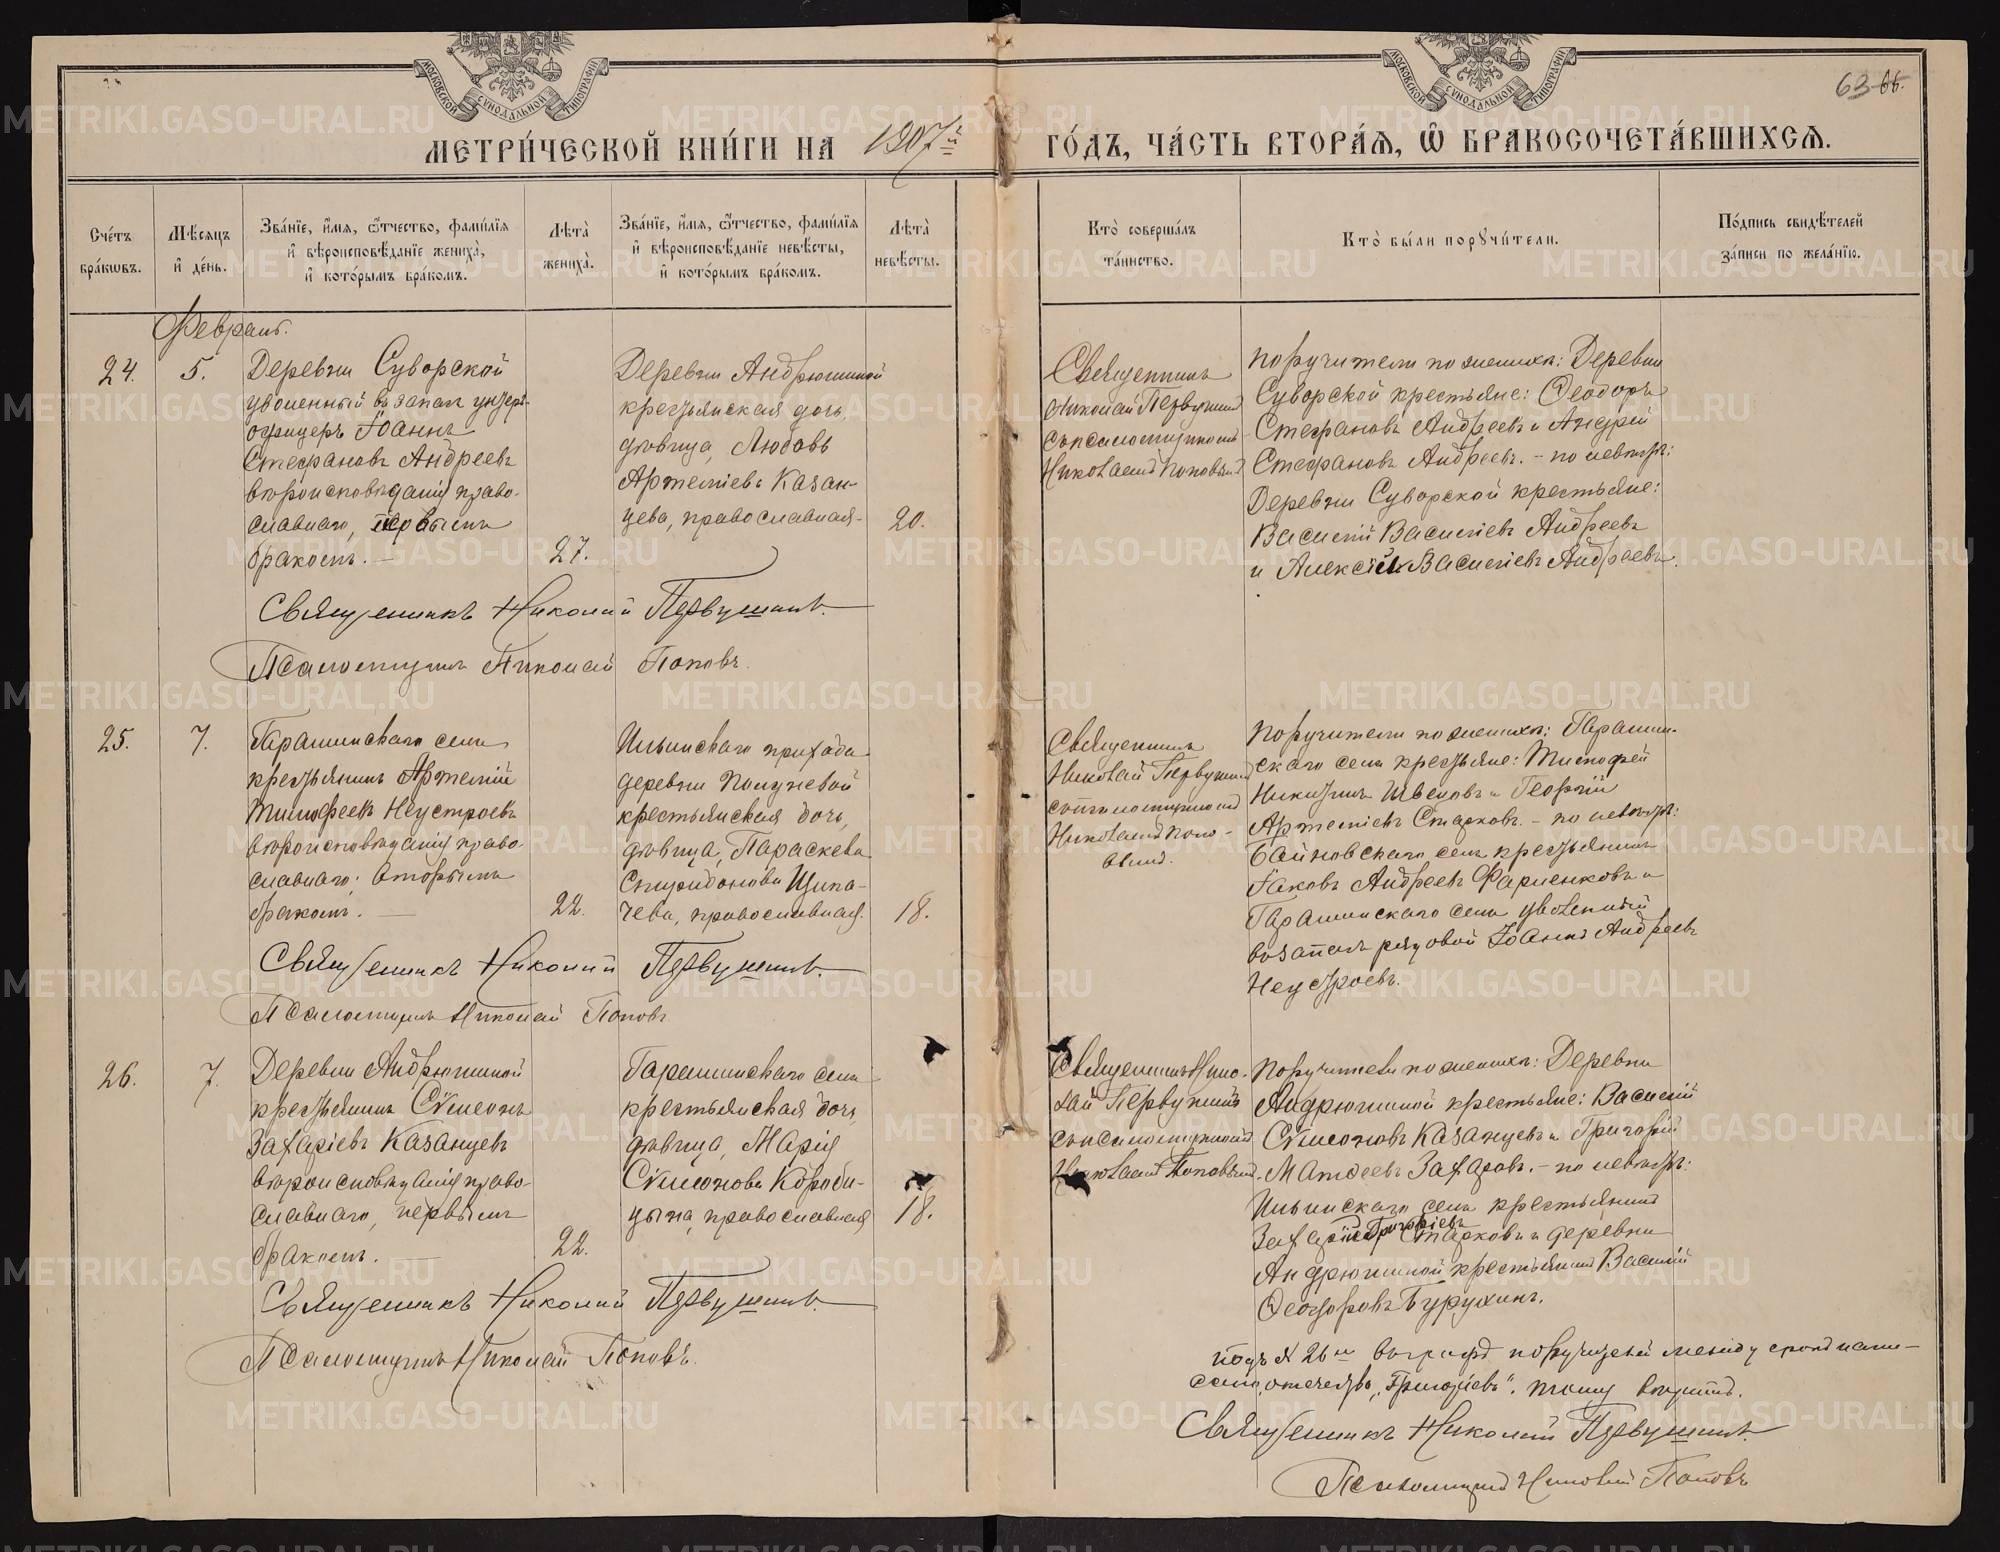 МОСКОВСКОЙ СѴНОДАЛЬНОЙ ТИПОГРАФІИ
МОСКОВСКОЙ СѴНОДАЛЬНОЙ ТИПОГРАФІИ
63 66.
МЕТРИ́ЧЕСКОЙ КНИ́ГИ НА 1907й ГО́ДЪ, ЧА́СТЬ ВТОРА́Ѧ, Ѽ БРАКОСОЧЕТА́ВШИХСѦ.
Сче́тъ бра́кѡвъ.
Мѣ́сяцъ и҆ де́нь.
Зва́нїе, и҆́мѧ, ѻ҆́тчество, фами́лїѧ и҆ вѣроисповѣ́данїе жениха̀, и҆ кото́рымъ бра́комъ.
Лѣ́та жениха̀.
Зва́нїе, и҆́мѧ, ѻ҆́тчество, фами́лїѧ и҆ вѣроисповѣ́данїе невѣ́сты, и҆ кото́рымъ бра́комъ.
Лѣ́та невѣ́сты.
Кто̀ соверша́лъ та́инство.
Кто̀ бы́ли порꙋчи́тели.
По́дпись свидѣ́телей за́писи по жела́нїю.
Февраль.
24.
5.
Деревни Суворской
уволенный в запасъ унтеръ-
офицеръ Іоаннъ
Стефановъ Андреевъ
вѣроисповѣданія право-
славнаго, первымъ
бракомъ. —
27.
Деревни Андрюшиной
крестьянская дочь,
дѣвица, Любовь
Артеміева Казан-
цева, православная.
20.
Священникъ
Николай Первушинъ
съ псаломщикомъ
Николаемъ Поповымъ
Поручители по женихѣ: Деревни
Суворской крестьяне: Ѳеодоръ
Стефановъ Андреевъ и Андрей
Стефановъ Андреевъ. - по невѣстѣ:
Деревни Суворской крестьяне:
Василій Василіевъ Андреевъ
и Алексій Василіевъ Андреевъ.
Священникъ Николай Первушинъ.
Псаломщикъ Николай Поповъ.
25.
7.
Гарашинскаго села
крестьянинъ Артемій
Тимофеевъ Неустроевъ
вѣроисповѣданія право-
славнаго; вторымъ
бракомъ. —
22.
Ильинскаго прихода
деревни Полуневой
крестьянская дочь,
дѣвица, Параскева
Спиридонова Щипа-
чева, православная.
18.
Священникъ
Николай Первушинъ
съ псаломщикомъ
Николаемъ Попо-
вымъ.
Поручители по женихѣ: Гарашин-
скаго села крестьяне: Тимофей
Никитинъ Швецовъ и Георгій
Артеміевъ Старковъ. - по невѣстѣ:
Байновскаго села крестьянинъ
Іаковъ Андреевъ Фарленковъ и
Гарашинскаго села уволенный
въ запасъ рядовой Іоаннъ Андреевъ
Неустроевъ.
Священникъ Николай Первушинъ.
Псаломщикъ Николай Поповъ
26.
7.
Деревни Андрюшиной
крестьянинъ Сѵмеонъ
Захаріевъ Казанцевъ
вѣроисповѣданія право-
славнаго, первымъ
бракомъ. —
22.
Гарашинскаго села
крестьянская дочь,
дѣвица, Марія
Сѵмеонова Короби-
цына, православная
18.
Священникъ Нико-
лай Первушинъ
съ псаломщикомъ
Николаемъ Поповымъ.
Поручители по женихѣ: Деревни
Андрюшиной крестьяне: Василій
Сѵмеоновъ Казанцевъ и Григорій
Матѳеевъ Захаровъ. - по невѣстѣ:
Ильинскаго села крестьянинъ
Захарій Григоріевъ Старковъ и деревни
Андрюшиной крестьянинъ Василій
Ѳеодоровъ Бурухинъ.
Священникъ Николай Первушинъ.
Псаломщикъ Николай Поповъ.
Подъ № 26м въ графѣ поручителей между строкъ напи-
сано, отечество, „Григоріевъ“. тому вѣрить.
Священникъ Николай Первушинъ.
Псаломщикъ Николай Поповъ
METRIKI.GASO-URAL.RU